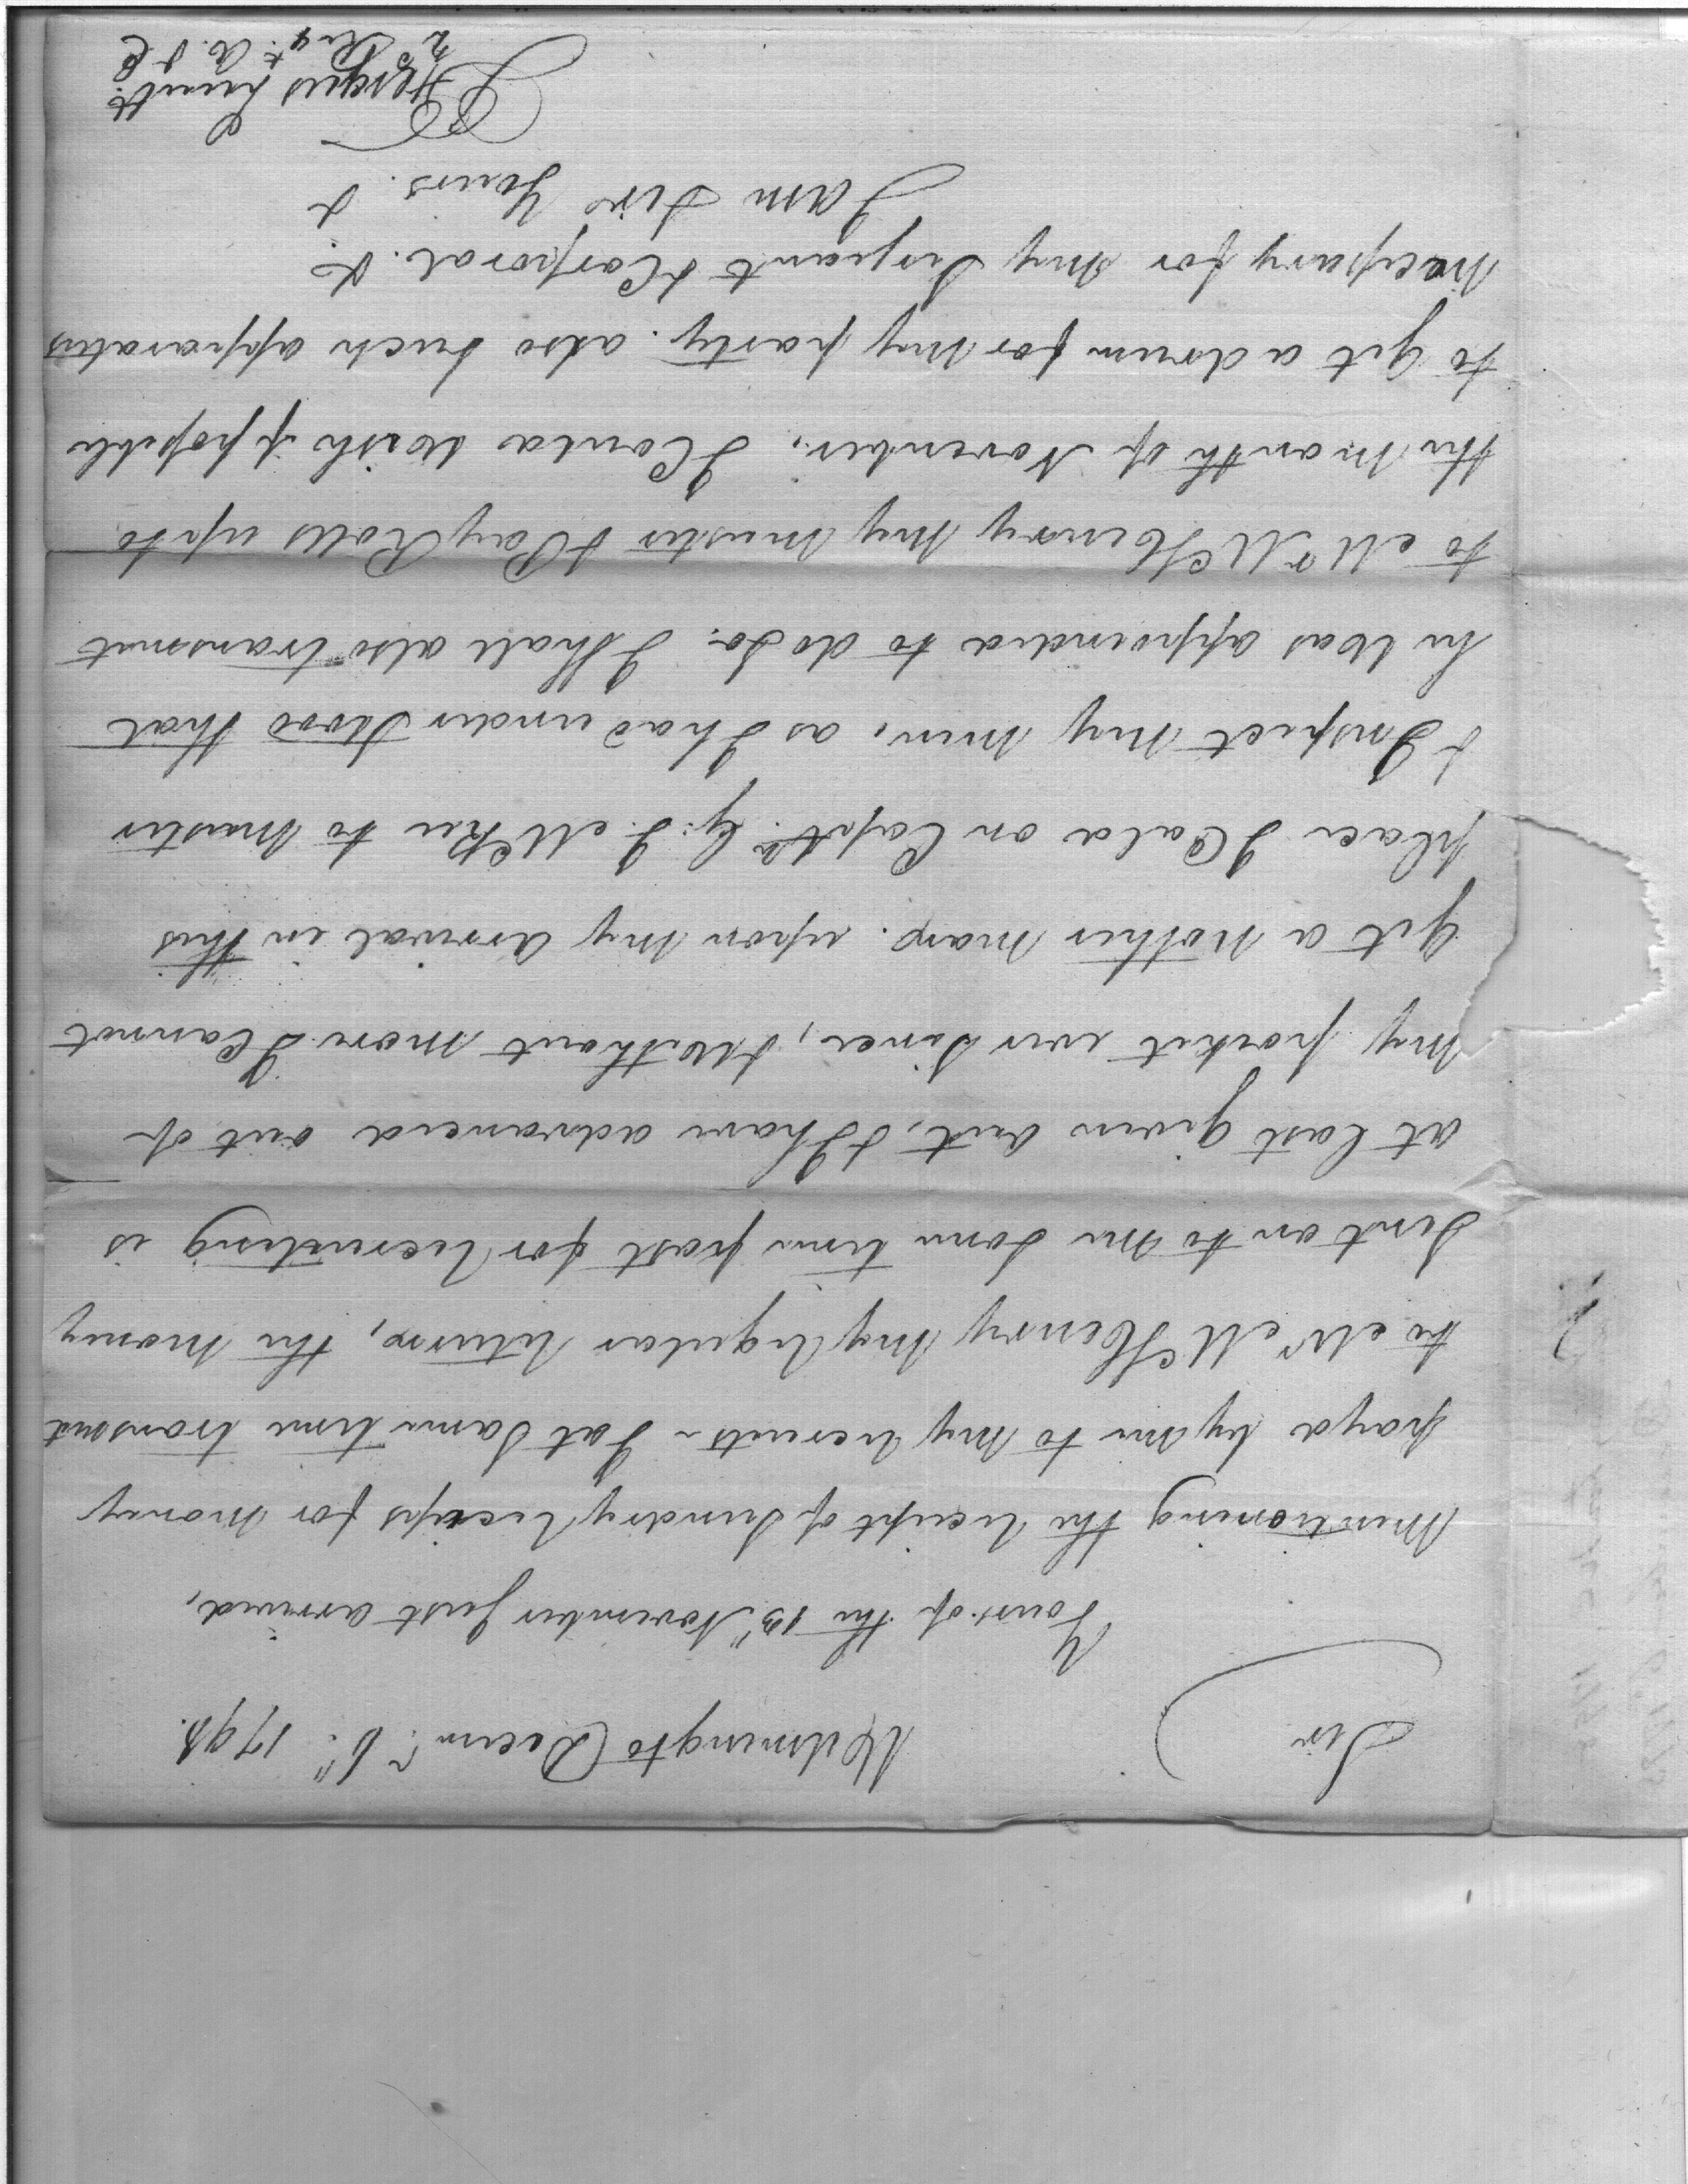 Sir
Wilmingto Decemr. 6th. 1798.
Yours of the 13th November Just arrived,
Mentioning the Receipt of Sundry Receips for Money
payd by Me to My Recruits I at Same time transmit
to Mr McHenry My Regular Returns, the Money
Sent on to Me Some time past for Recruiting is
at Last given out, & I have advanced out of
My pocket ever Since, & Without More I Cannot
get a Nother Man. upon My Arrival in this
place I Cald on Capt. G: I. McRee to Muster
& Inspect My Men, as I had under Stood that
he Was appointed to do So. I Shall also transmit
to Mr McHenry My Muster & Pay Rolls up to
the Month of November. I Could Wish if possible
to get a drum for My party. also Such apparatus
necessary for My Serjeant & Corporal. &c
I am Sir Yours. &
Lieut.
2d Regt. A. & E